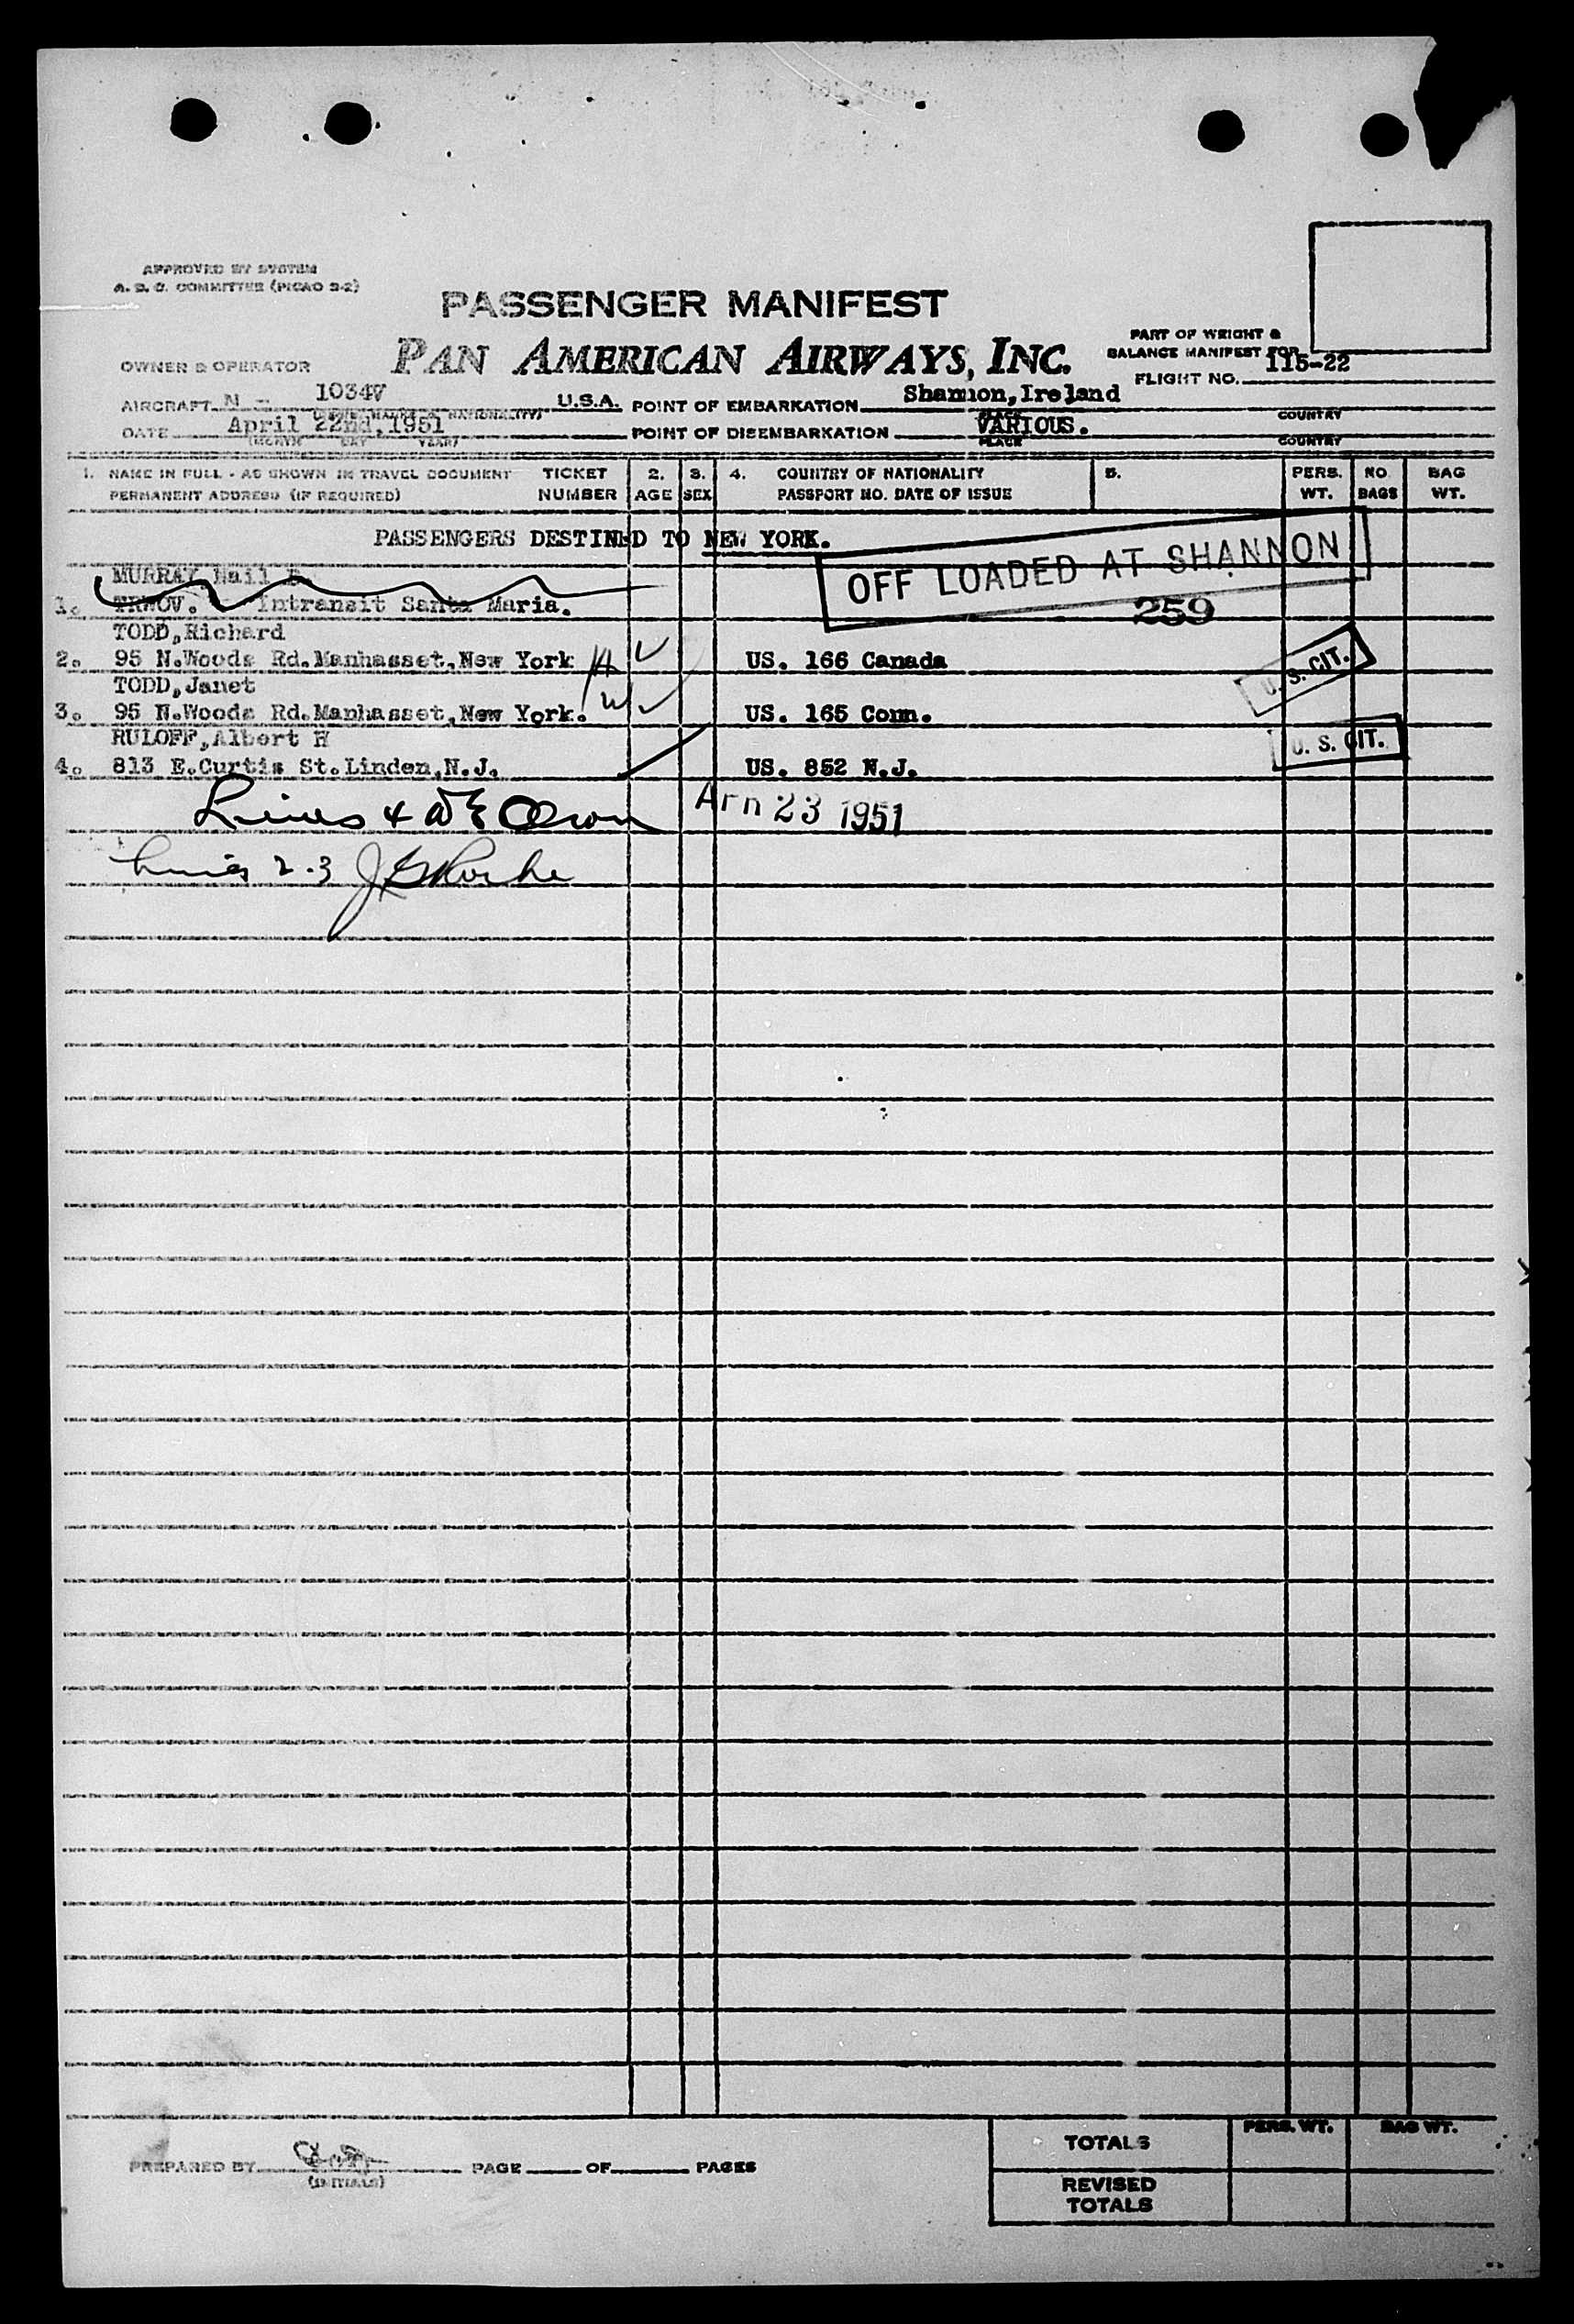 APPROVED BY SYSTEM
A. D. C. COMMITTEE (PICAO 2-2)
PASSENGER MANIFEST
PAN AMERICAN AIRWAYS, INC.
PART OF WEIGHT &
BALANCE MANIFEST FOR
OWNER & OPERATOR
FLIGHT NO. 115-22
AIRCRAFT N - 1034V U.S.A. POINT OF EMBARKATION Shannon, Ireland
PLACE COUNTRY
DATE April 22nd, 1951 POINT OF DISEMBARKATION VARIOUS.
(MONTH DAY YEAR) PLACE COUNTRY
1. NAME IN FULL - AS SHOWN IN TRAVEL DOCUMENT TICKET 2. 3. 4. COUNTRY OF NATIONALITY 5. PERS. NO. BAG
PERMANENT ADDRESS (IF REQUIRED) NUMBER AGE SEX PASSPORT NO. DATE OF ISSUE WT. BAGS WT.
PASSENGERS DESTINED TO NEW YORK.
OFF LOADED AT SHANNON
MURRAY
1. Intransit Santa Maria.
259
TODD, Richard
2. 95 N.Woods Rd.Manhasset, New York US. 166 Canada U. S. CIT.
TODD, Janet
3. 95 N.Woods Rd.Manhasset, New York. US. 165 Conn.
RULOFF, Albert H U. S. CIT.
4. 813 E.Curtis St.Linden, N.J. US. 852 N.J.
23 1951
2-3
PREPARED BY PAGE OF PAGES
(INITIALS)
PERS. WT. BAG WT.
TOTALS
REVISED
TOTALS